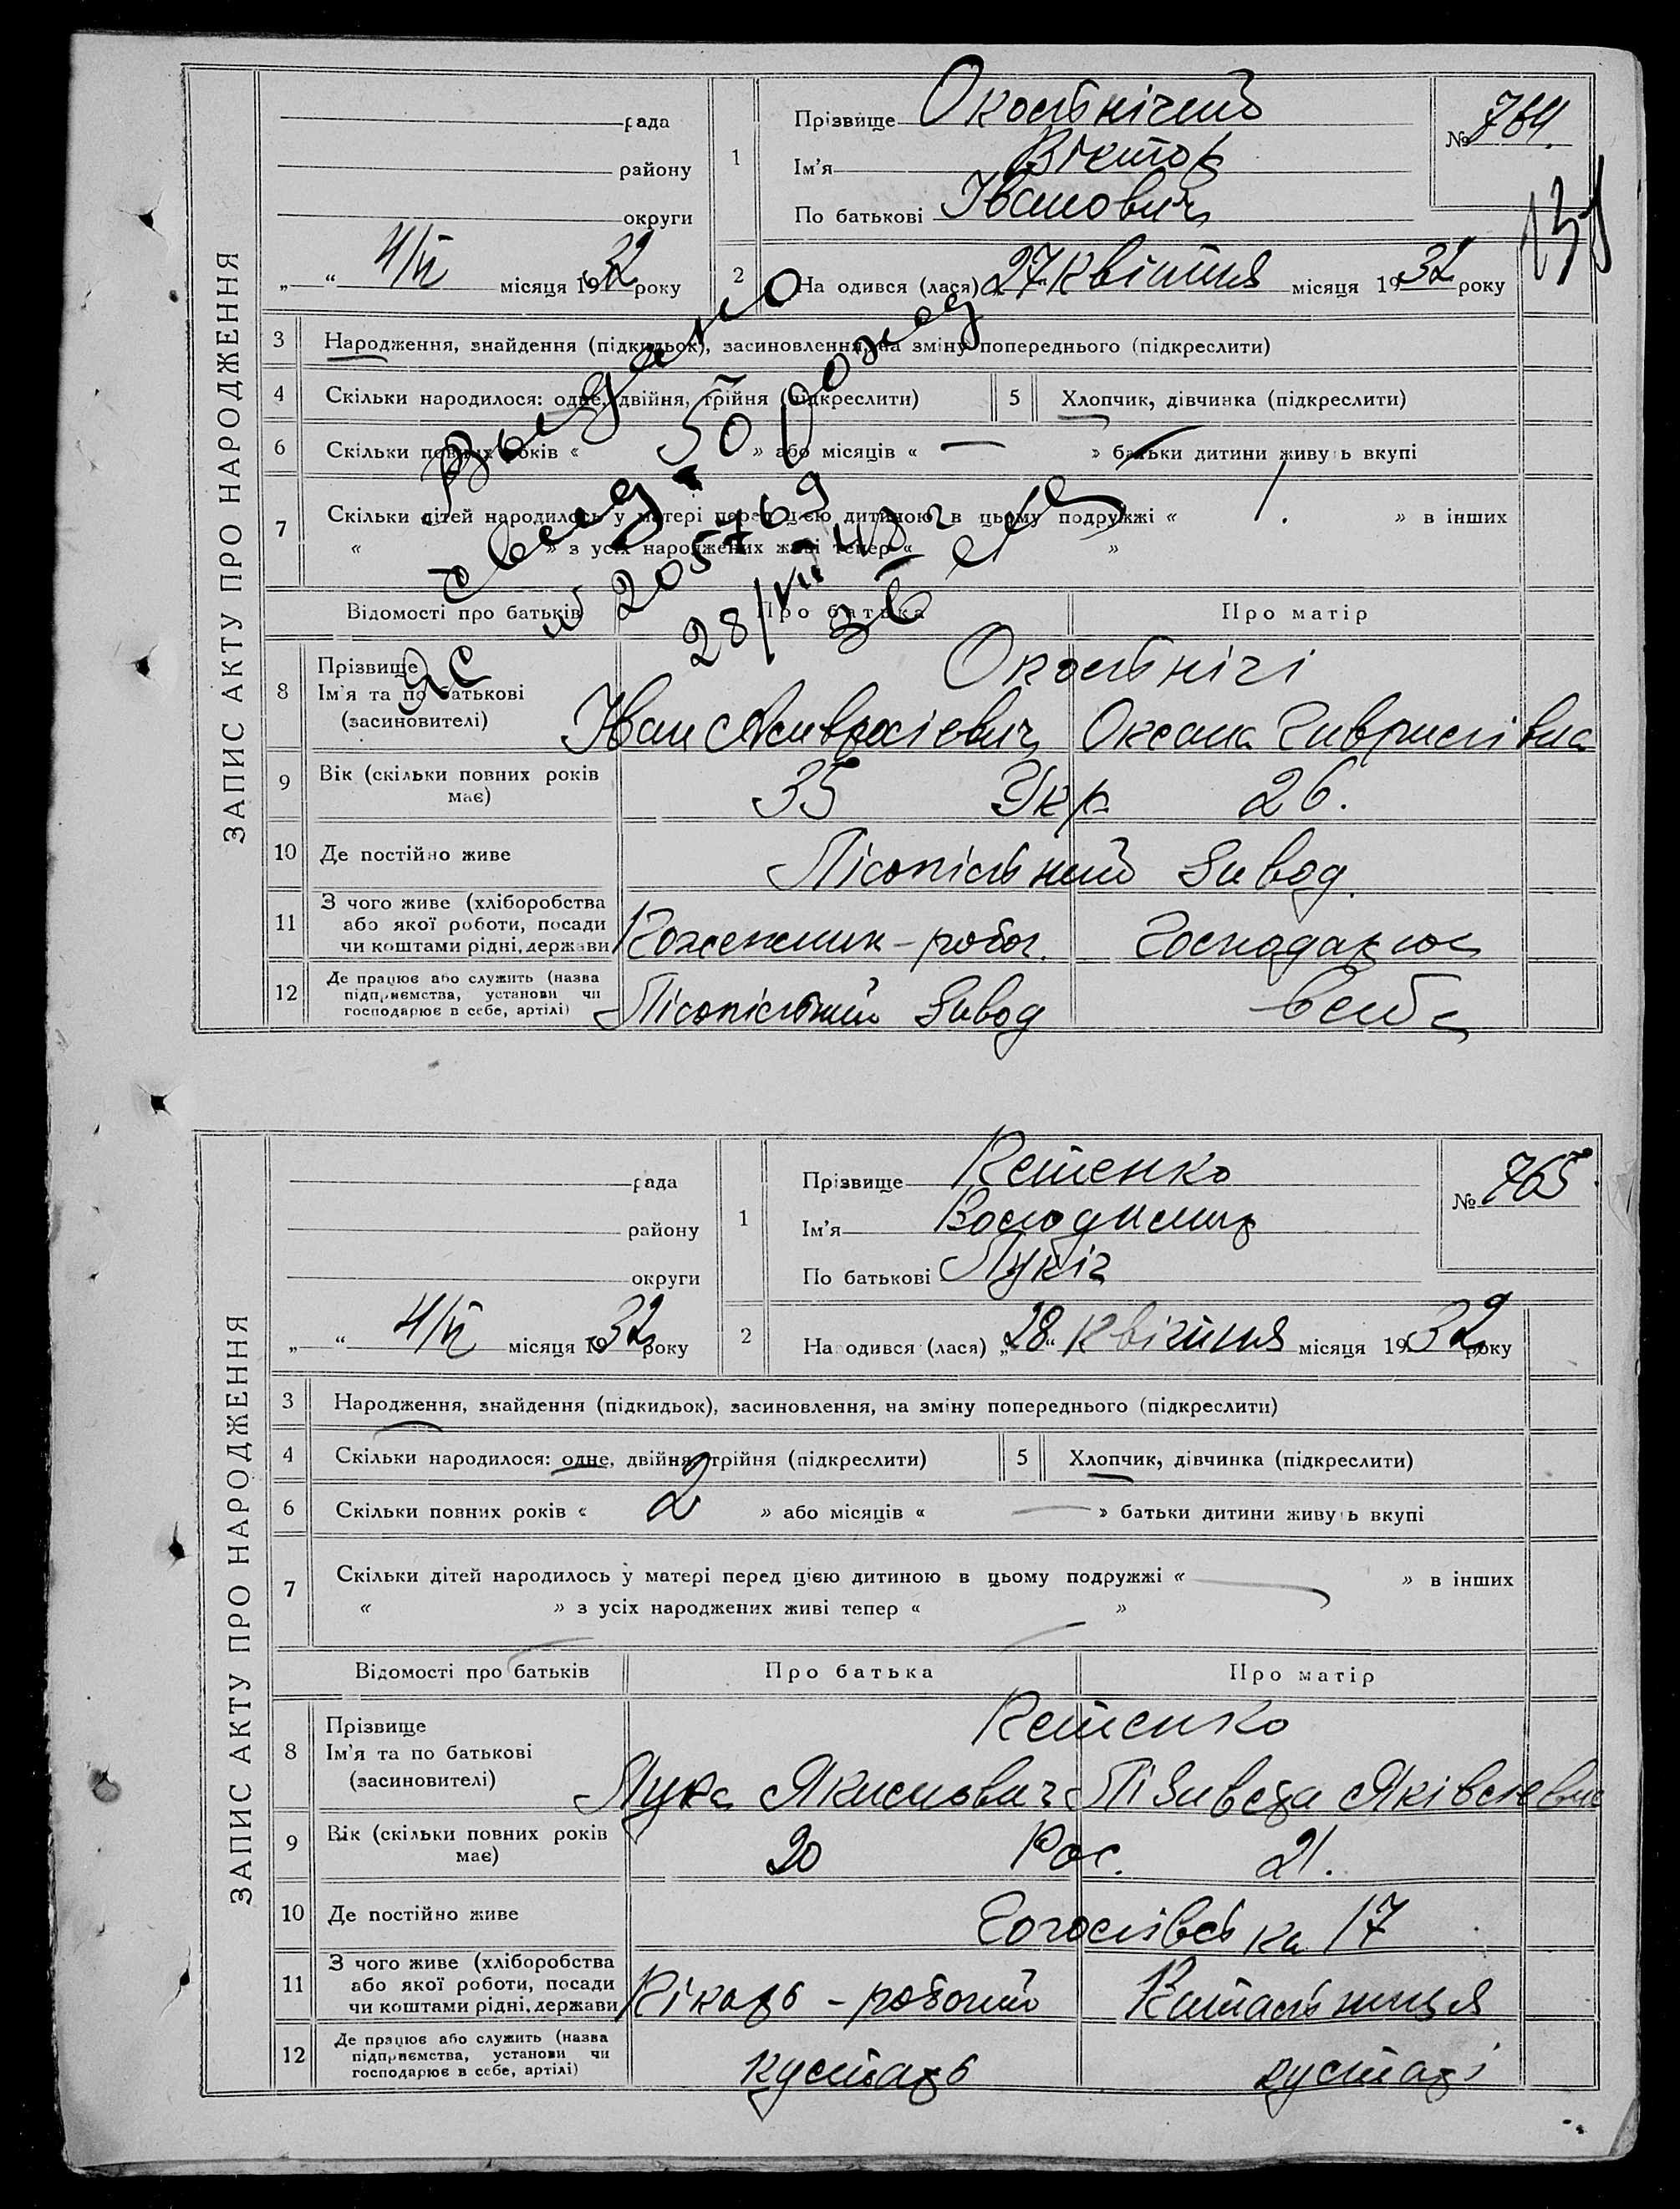 ЗАПИС АКТУ ПРО НАРОДЖЕННЯ
рада
району
округи
„ “ 4/V місяця 1932 року
1 Прізвище Окольнічий
Ім'я Віктор
По батькові Іванович
№ 764.
131
2 На одився (лася) „27“ квітня місяця 1932 року
3 Народження, знайдення (підкидьок), засиновлення, на зміну попереднього (підкреслити)
4 Скільки народилося: одне, двійня, трійня (підкреслити) 5 Хлопчик, дівчинка (підкреслити)
6 Скільки повних років « 5 » або місяців « — » батьки дитини живуть вкупі
7 Скільки дітей народилось у матері перед цією дитиною в цьому подружжі « 1. » в інших
« » з усіх народжених живі тепер « »
Выдано
свид. о рожд
№ 205769
28/VII-48 г
Відомості про батьків Про батька Про матір
8 Прізвище
Ім'я та по батькові
(засиновителі)
Окольнічі
Іван Амвросієвич Оксана Гаврилівна
9 Вік (скільки повних років має) 35 Укр. 26.
10 Де постійно живе Лісопільний завод.
11 З чого живе (хліборобства
або якої роботи, посади
чи коштами рідні, держави
Коженник – робоч. Господарює
12 Де працює або служить (назва
підприємства, установи чи
господарює в себе, артілі)
Лісопільний завод в себе
ЗАПИС АКТУ ПРО НАРОДЖЕННЯ
рада
району
округи
„ “ 4/V місяця 1932 року
1 Прізвище Кетенко
Ім'я Володимир
По батькові Лукіч
№ 765.
2 На одився (лася) „28“ квітня місяця 1932 року
3 Народження, знайдення (підкидьок), засиновлення, на зміну попереднього (підкреслити)
4 Скільки народилося: одне, двійня, трійня (підкреслити) 5 Хлопчик, дівчинка (підкреслити)
6 Скільки повних років « 2 » або місяців « — » батьки дитини живуть вкупі
7 Скільки дітей народилось у матері перед цією дитиною в цьому подружжі « — » в інших
« » з усіх народжених живі тепер « »
Відомості про батьків Про батька Про матір
8 Прізвище
Ім'я та по батькові
(засиновителі)
Кетенко
Лука Якимович Лізавета Яківлевна
9 Вік (скільки повних років має) 20 Рос. 21.
10 Де постійно живе 17
11 З чого живе (хліборобства
або якої роботи, посади
чи коштами рідні, держави
робочий
12 Де працює або служить (назва
підприємства, установи чи
господарює в себе, артілі)
кустарь кустарі